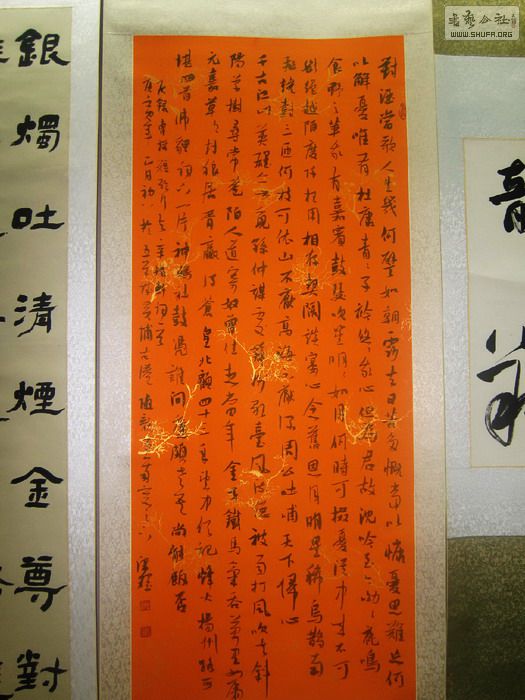 對酒當歌人生幾何譬如朝露去日苦多慨當以慷憂思難忘何
以解憂唯有杜康青青子衿悠悠我心但為君故沈吟至今呦呦鹿鳴
食野之苹我有嘉賓鼓瑟吹笙明明如月何時可掇憂從中來不可
斷絕越陌度阡枉用相存契闊談讌心念舊恩月明星稀烏鵲南
飛繞樹三匝何枝可依山不厭高海不厭深周公吐哺天下歸心
千古江山英雄無覓孫仲謀處舞榭歌臺風流總被雨打風吹去斜
陽草樹尋常巷陌人道寄奴曾住想當年金戈鐵馬氣吞萬里如虎
元嘉草草封狼居胥贏得倉皇北顧四十三年望中猶記烽火揚州路可
堪回首佛狸祠下一片神鴉社鼓憑誰問廉頗老矣尚能飯否
銀燭吐清煙金尊對
WWW.SHUFA.ORG